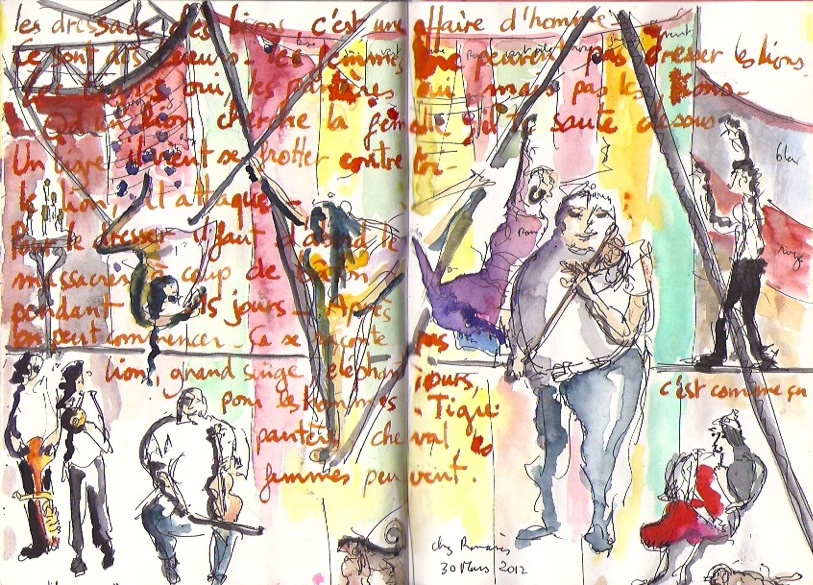 les dressage des lions c'est une affaire d'homme
Ce sont des tueurs - les femmes ne peuvent pas dresser les lions
Les tigres oui, les pantères oui mais pas les lions -
Qd un lion cherche la femelle, il te saute dessus
Un tigre il vient se frotter contre toi -
le lion, il attaque -
Pour le dresser il faut d'abord le
massacrer à coup de bâton
pendant 15 jours - Après
on peut commencer - Ça se raconte pas
lion, grand singe, elephant, ours,
c'est comme ça
pour les hommes - Tigre
pantère cheval les
femmes peuvent.
bleu
rouge
chez Romanès
30 Mars 2012